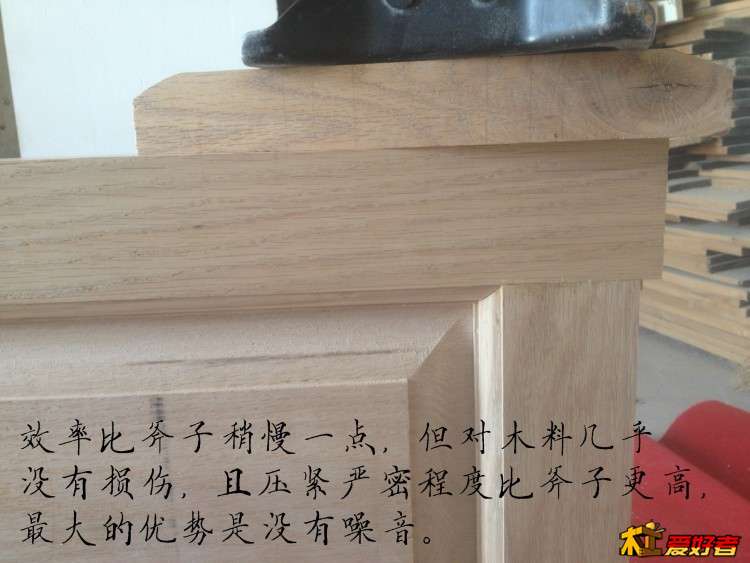 效率比斧子稍慢一点，但对木料几乎
没有损伤，且压紧严密程度比斧子更高，
最大的优势是没有噪音。
木工爱好者